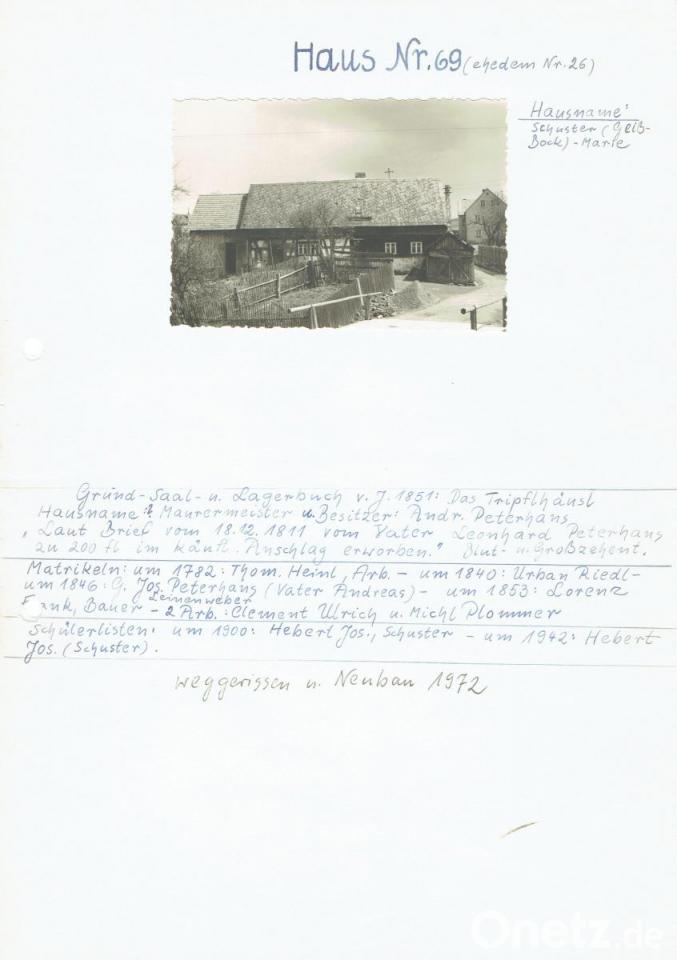 Haus Nr. 69 (ehedem Nr. 26)
Hausname:
Schuster (Geiß-
Bock) - Marie
Grund-Saal- u. Lagerbuch v. J. 1851: Das Tripflhäusl
Hausname: Maurermeister u. Besitzer: Andr. Peterhans
"Laut Brief vom 18.12.1811 vom Vater Leonhard Peterhans
zu 200 fl im käufl. Anschlag erworben." Blut- u. Großzehent.
Matrikeln: um 1782: Thom. Heinl, Arb. - um 1840: Urban Riedl -
um 1846: G. Jos. Peterhans (Vater Andreas) - um 1853: Lorenz
Leinenweber
Frank, Bauer - 2 Arb.: Clement Ulrich u. Michl Plommer
Schülerlisten: um 1900: Hebert Jos., Schuster - um 1942: Hebert
Jos. (Schuster).
weggerissen u. Neubau 1972
Onetz.de